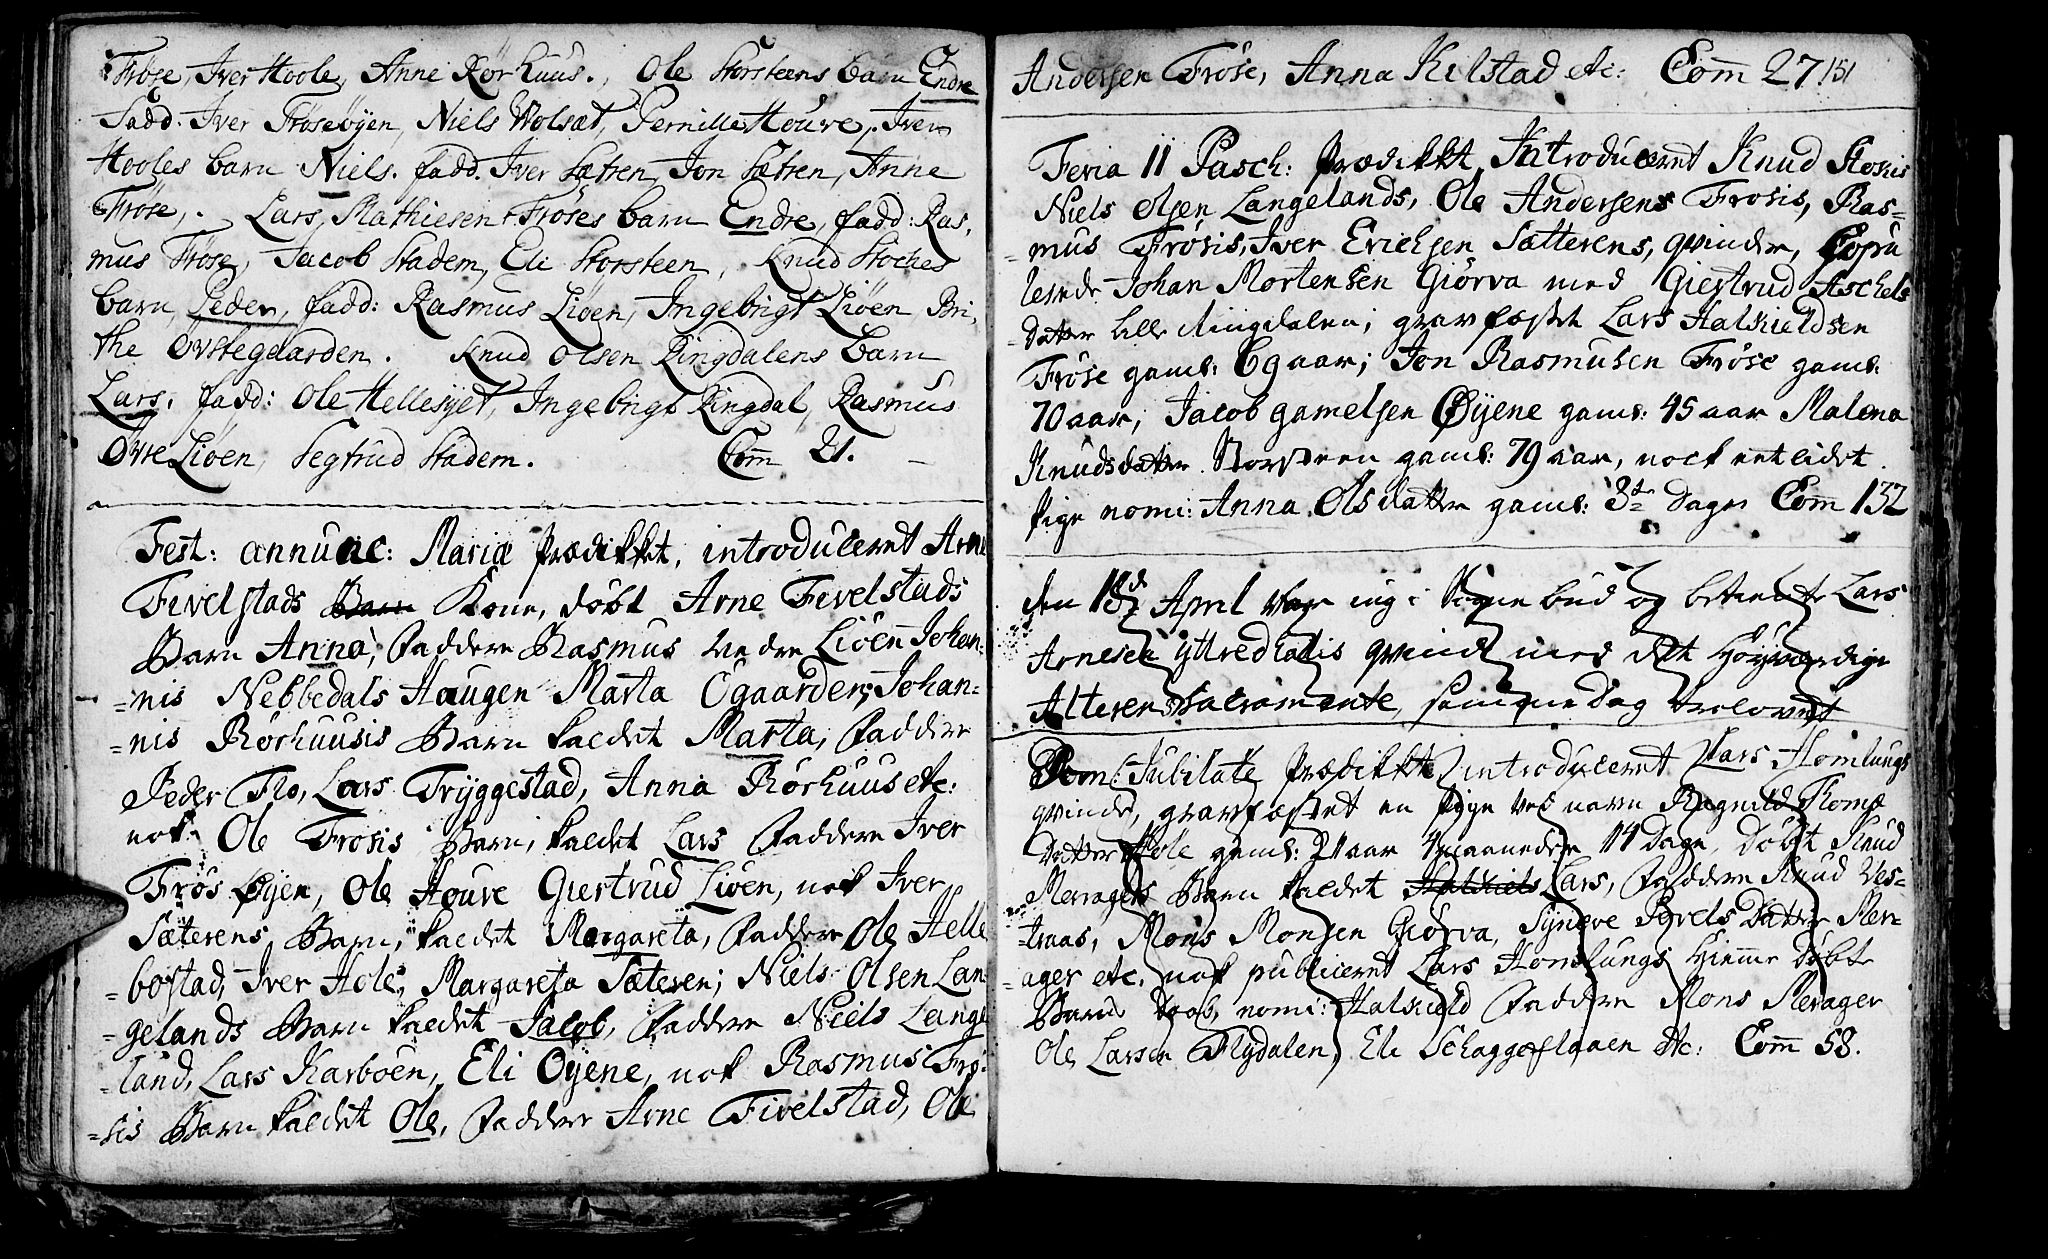 Frøse, Iver Hoole, Anne Rörhuus., Ole Storsteens barn Endre
Fadd. Iver Frøseøyen, Niels Wolsæt, Pernille Houve, Iver
Hooles barn Niels. fadd. Iver Sætren, Jon Sætren, Anne
Frøse,. Lars Mathiesen Frøses barn Endre, fadd: Ras,
mus Frøse, Jacob Stadem, Eli Storsteen, Knud Stoches
barn Peder, fadd: Rasmus Liøen, Ingebrigt Liøen, Bri,
the Øvstegaarden. Knud Olsen Ringdalens barn
Lars, fadd: Ole Hellesyet, Ingebrigt Ringdal, Rasmus
Øvre Liøen, Segtrud Stadem. Comm 21.
Fest: annunc: Mariæ Prædikket, introduceret Arne
Fivelstads Barn Kone, døbt Arne Fivelstads
Barn Anna, Faddere Rasmus Nedre Liöen Johan=
=nis Nebbedals Haugen Marta Ögaarden, Johan=
=nis Rörhuusis Barn kaldet Marta, Faddere
Peder Flo, Lars Tryggestad, Anna Rörhuus etc:
nok Ole Frosis Barn, kaldet Lars Faddere Iver
Frös Øyen, Ole Houve Giertrud Liöen, nok Iver
Sæterens Barn, kaldet Margareta, Faddere Ole Helle
=bostad, Iver Hole, Margareta Sæteren; Niels Olsen Lan
=gelands Barn kaldet Jacob, Faddere Niels Lange
=land, Lars Karböen, Eli Oyene, nok Rasmus Frö=
=sis Barn kaldet Ole, Faddere Arne Fivelstad, Ole
Andersen Fröse, Anna Kilstad etc: Comm 27 151
Feria II Pasch: Prædikket Introduceret Knud Stokis
Niels Olsen Langelands, Ole Andersens Frosis, Ras=
=mus Frösis, Iver Erichsen Sætterens, qvinder, Copu
lerede Johan Mortensen Giörva med Giertrud Aschels
=datter lille Ringdalen; graffæstet Lars Halkieldsen
Fröse gaml: 69 aar; Jon Rasmusen Fröse gaml:
70 aar, Jacob gamelsen Øyene gaml: 45 aar Malena
Knudsdatter Storsteen gaml: 79 aar, nock et lidet
Pige nomi: Anna Olsdatter gaml: 3de Dage Comm 132
den 18de April var ieg i Sognebud og betiente Lars
Arnesen yttredhalis qvinde med det Höyværdige
Alterens Sacramente, samme dag trolovet
Dom: Jubilate Prædikket introduceret Lars Homlungs
qvinde, graffæstet en Pige ved navn Ragnild Thomæ
Datter Hole gaml: 2 aar 4 maaneder 14 Dage, Döbt Knud
Meragers Barn kaldet Halkiels Lars, Faddere Knud Ves=
=traas, Mons Monsen Giörva, Syneve Povels Datter Mer=
=ager etc. nok publiceret Lars Homlungs Hiemme Döbte
Barns Daab, nomi: Halkield Faddere Mons Merager
Ole Larsen Flydalen, Eli Schaggeflaaen etc: Comm 58.